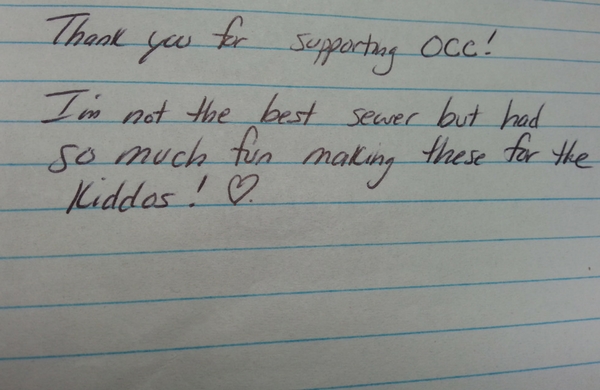 Thank you for supporting OCC!
I'm not the best sewer but had
so much fun making these for the
Kiddos! ♡